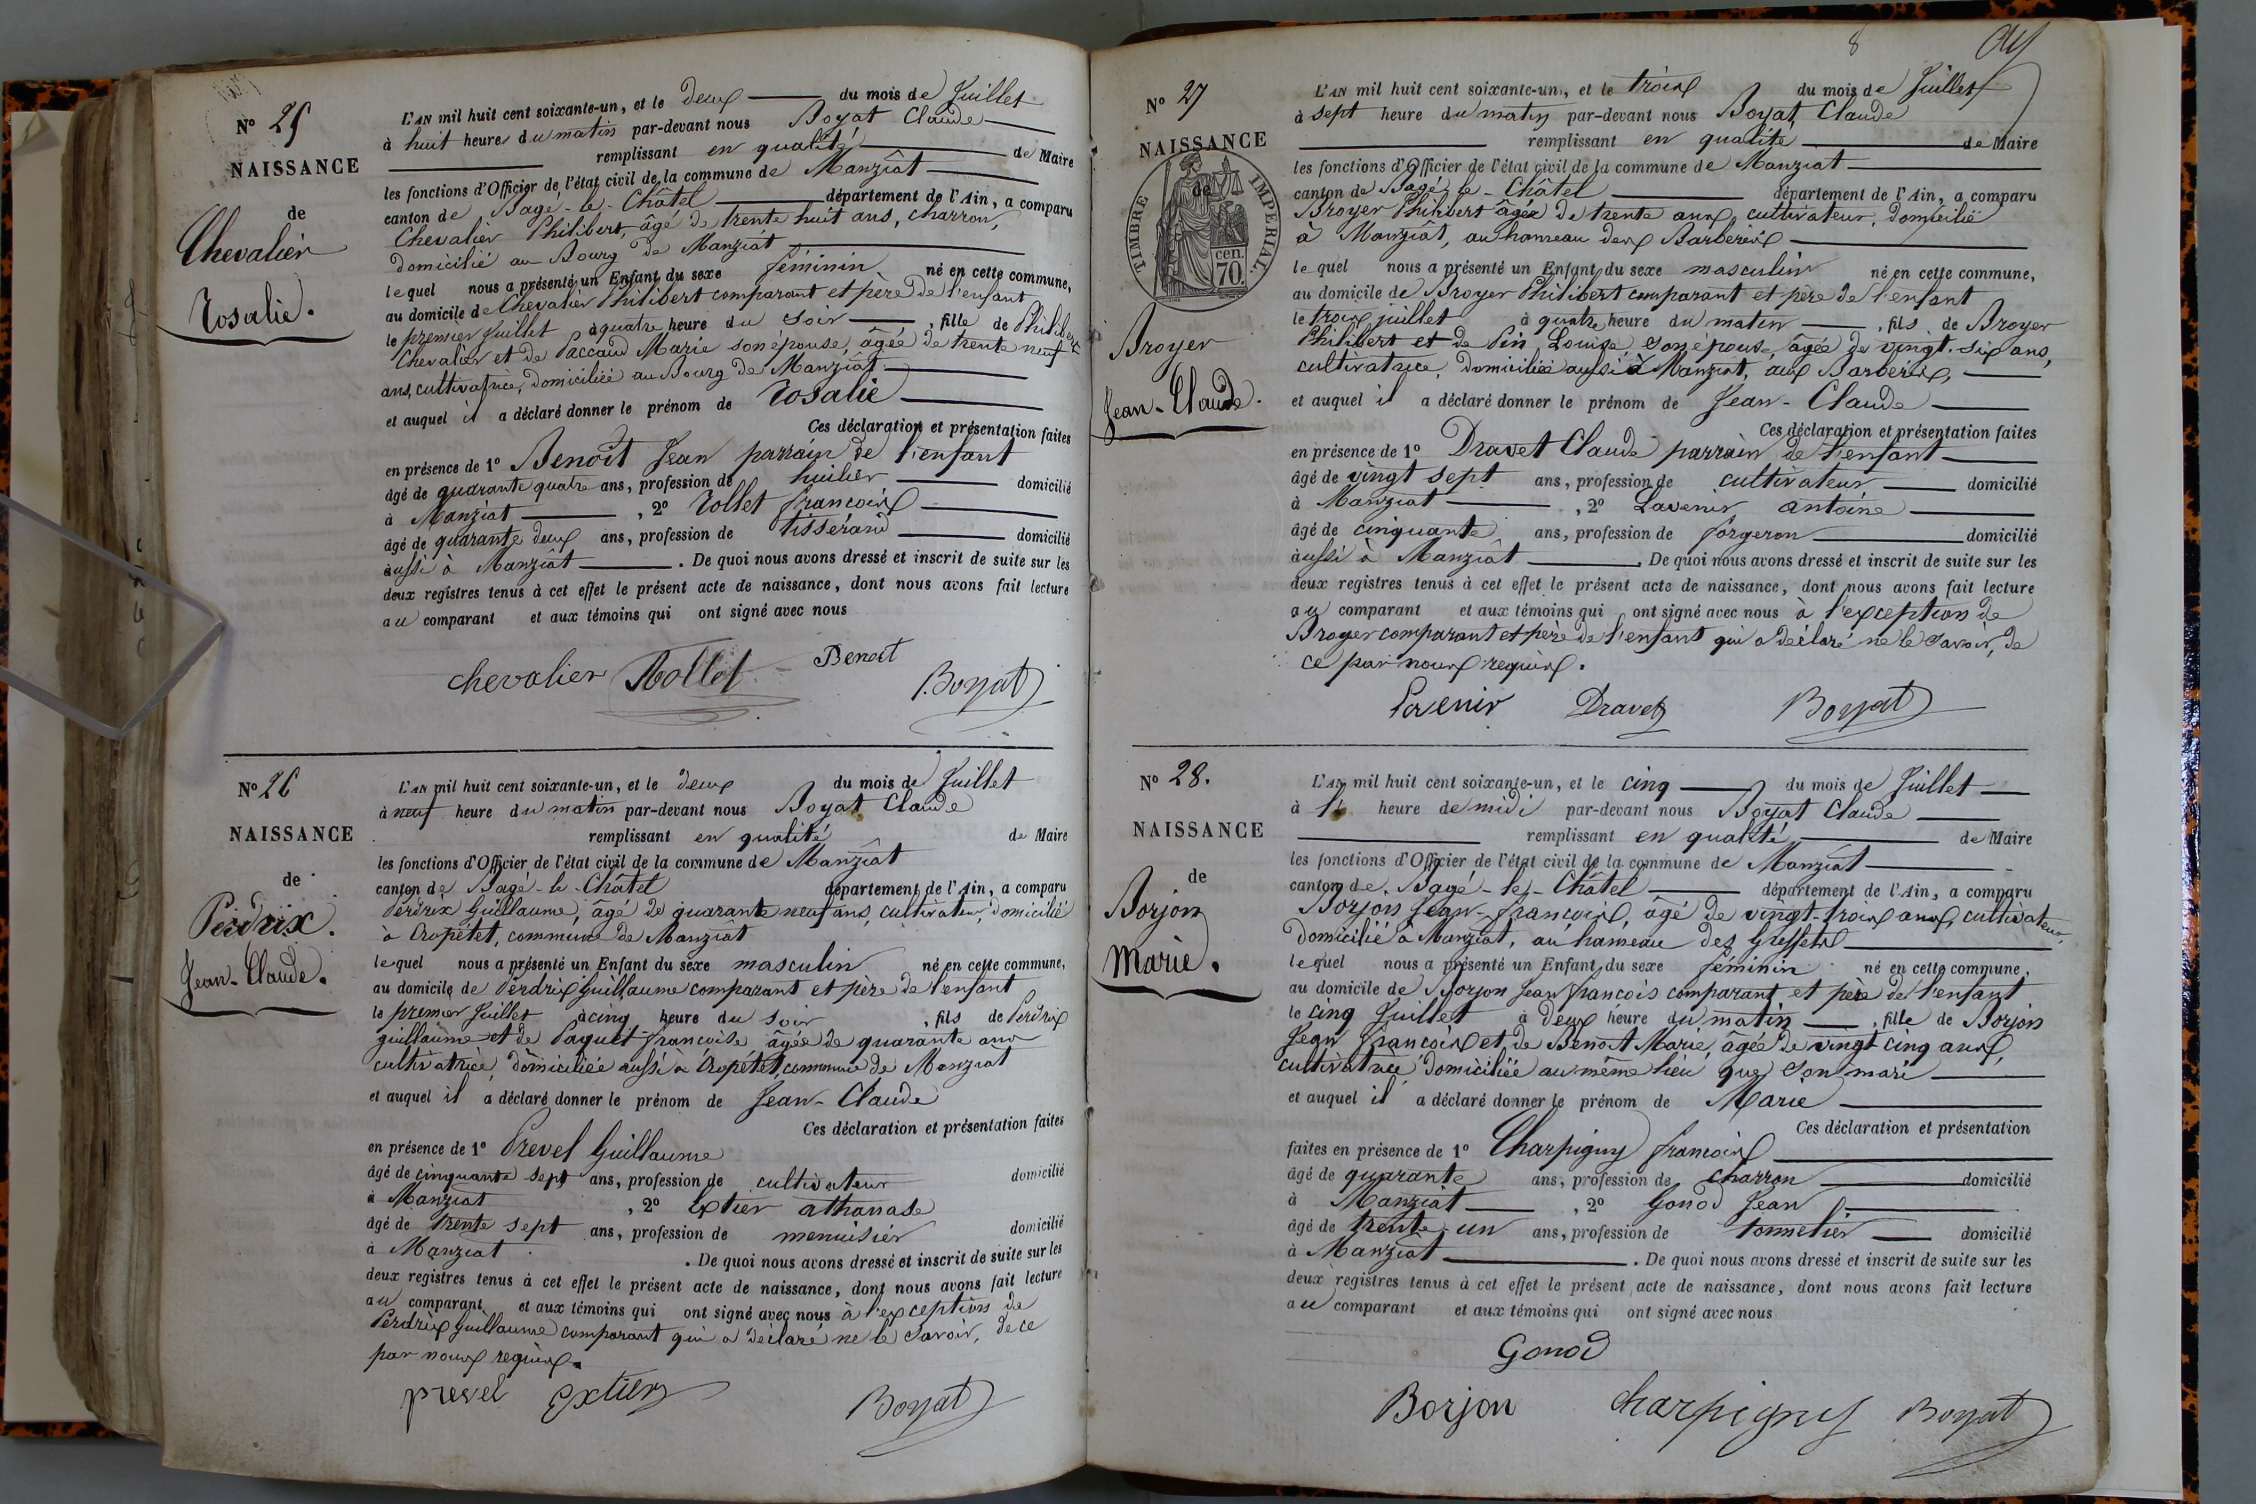 N° 25
NAISSANCE
de
Chevalier
Rosalie.
L'AN mil huit cent soixante-un, et le deux du mois de Juillet
à huit heures du matin par-devant nous Boyat Claude
remplissant en qualité de Maire
les fonctions d'Officier de l'état civil de la commune de Manziât
canton de Bagé-le-Châtel département de l'Ain, a comparu
Chevalier Philibert, âgé de trente huit ans, charron,
domicilié au Bourg de Manziat
lequel nous a présenté un Enfant du sexe féminin né en cette commune,
au domicile de Chevalier Philibert comparant et père de l'enfant
le premier Juillet à quatre heure du soir, fille de Philibert
Chevalier et de Paccaud Marie son épouse, âgée de trente neuf
ans, cultivatrice, domiciliée au Bourg de Manziat
et auquel il a déclaré donner le prénom de Rosalie
Ces déclaration et présentation faites
en présence de 1° Benoît Jean parrain de l'enfant
âgé de quarante quatre ans, profession de huilier domicilié
à Manziat, 2° Rollet françois
âgé de quarante deux ans, profession de tisserand domicilié
aussi à Manziât. De quoi nous avons dressé et inscrit de suite sur les
deux registres tenus à cet effet le présent acte de naissance, dont nous avons fait lecture
au comparant et aux témoins qui ont signé avec nous
chevalier Rollet Benoit
Boyat
N° 26
NAISSANCE
de
Perdrix.
Jean-Claude.
L'AN mil huit cent soixante-un, et le deux du mois de Juillet
à neuf heure du matin par-devant nous Boyat Claude
remplissant en qualité de Maire
les fonctions d'Officier de l'état civil de la commune de Manziât
canton de Bagé-le-Châtel département de l'Ain, a comparu
Perdrix Guillaume, âgé de quarante neuf ans, cultivateur, domicilié
à Cropétet, commune de Manziât
lequel nous a présenté un Enfant du sexe masculin né en cette commune,
au domicile de Perdrix Guillaume comparant et père de l'enfant
le premier Juillet à cinq heure du soir, fils de Perdrix
guillaume et de Paquet françoise âgée de quarante ans
cultivatrice, domiciliée aussi à Cropétet, commune de Manziat
et auquel il a déclaré donner le prénom de Jean-Claude
Ces déclaration et présentation faites
en présence de 1° Prevel Guillaume
âgé de cinquante sept ans, profession de cultivateur domicilié
à Manziat, 2° Extier athanase
âgé de trente sept ans, profession de menuisier domicilié
à Manziat. De quoi nous avons dressé et inscrit de suite sur les
deux registres tenus à cet effet le présent acte de naissance, dont nous avons fait lecture
au comparant et aux témoins qui ont signé avec nous à l'exception de
Perdrix Guillaume comparant qui a déclaré ne le savoir, de ce
par nous requis.
prevel Extier Boyat
8
N° 27
NAISSANCE
de
TIMBRE IMPERIAL.
70. cen.
Broyer
Jean-Claude.
L'AN mil huit cent soixante-un, et le trois du mois de Juillet
à sept heure du matin par-devant nous Boyat Claude
remplissant en qualité de Maire
les fonctions d'Officier de l'état civil de la commune de Manziat
canton de Bagé-le-Châtel département de l'Ain, a comparu
Broyer Philibert âgée de trente ans, cultivateur, domicilié
à Manziât, au hameau des Barberis
lequel nous a présenté un Enfant du sexe masculin né en cette commune,
au domicile de Broyer Philibert comparant et père de l'enfant
le trois juillet à quatre heure du matin, fils de Broyer
Philibert et de Pin Louise, son épouse, âgée de vingt-six ans,
cultivatrice, domiciliée aussi à Manziat, aux Barberis,
et auquel il a déclaré donner le prénom de Jean-Claude
Ces déclaration et présentation faites
en présence de 1° Dravet Claude parrain de l'enfant
âgé de vingt sept ans, profession de cultivateur domicilié
à Manziat, 2° Lavenir antoine
âgé de cinquante ans, profession de forgeron domicilié
aussi à Manziât. De quoi nous avons dressé et inscrit de suite sur les
deux registres tenus à cet effet le présent acte de naissance, dont nous avons fait lecture
au comparant et aux témoins qui ont signé avec nous à l'exception de
Broyer comparant et père de l'enfant qui a déclaré ne le savoir, de
ce par nous requis.
Lavenir Dravet Boyat
N° 28.
NAISSANCE
de
Borjon
Marie.
L'AN mil huit cent soixante-un, et le cinq du mois de Juillet
à heure de midi par-devant nous Boyat Claude
remplissant en qualité de Maire
les fonctions d'Officier de l'état civil de la commune de Manziat
canton de Bagé-le-Châtel département de l'Ain, a comparu
Borjon Jean-françois, âgé de vingt-trois ans, cultivateur,
domicilié à Manziat, au hameau des Greffets
lequel nous a présenté un Enfant du sexe féminin né en cette commune,
au domicile de Borjon Jean françois comparant et père de l'enfant
le cinq Juillet à deux heure du matin, fille de Borjon
Jean françois et de Benoît Marie, âgée de vingt cinq ans,
cultivatrice, domiciliée au même lieu que son mari
et auquel il a déclaré donner le prénom de Marie
Ces déclaration et présentation
faites en présence de 1° Charpigny françois
âgé de quarante ans, profession de charron domicilié
à Manziat, 2° Gonod Jean
âgé de trente-un ans, profession de tonnelier domicilié
à Manziât. De quoi nous avons dressé et inscrit de suite sur les
deux registres tenus à cet effet le présent acte de naissance, dont nous avons fait lecture
au comparant et aux témoins qui ont signé avec nous
Gonod
Borjon charpigny Boyat